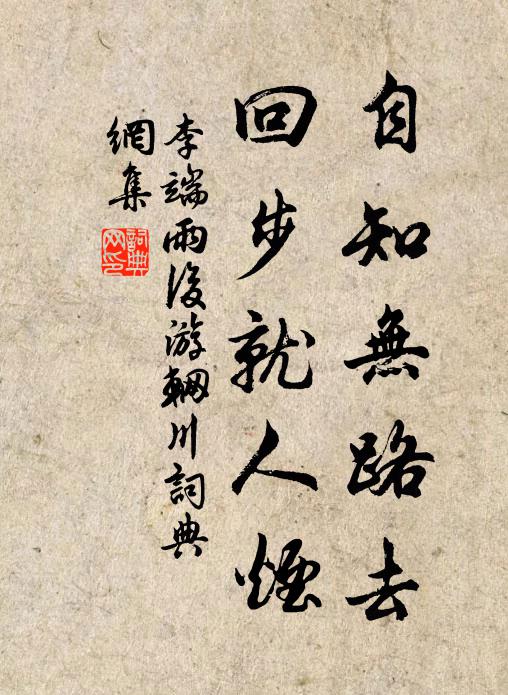 自知無路去
回步就人煙
李端雨後游輞川詞典
網集
詞典
网印